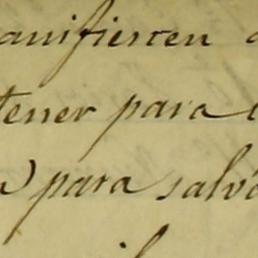 anifiesten
tener para
para salv